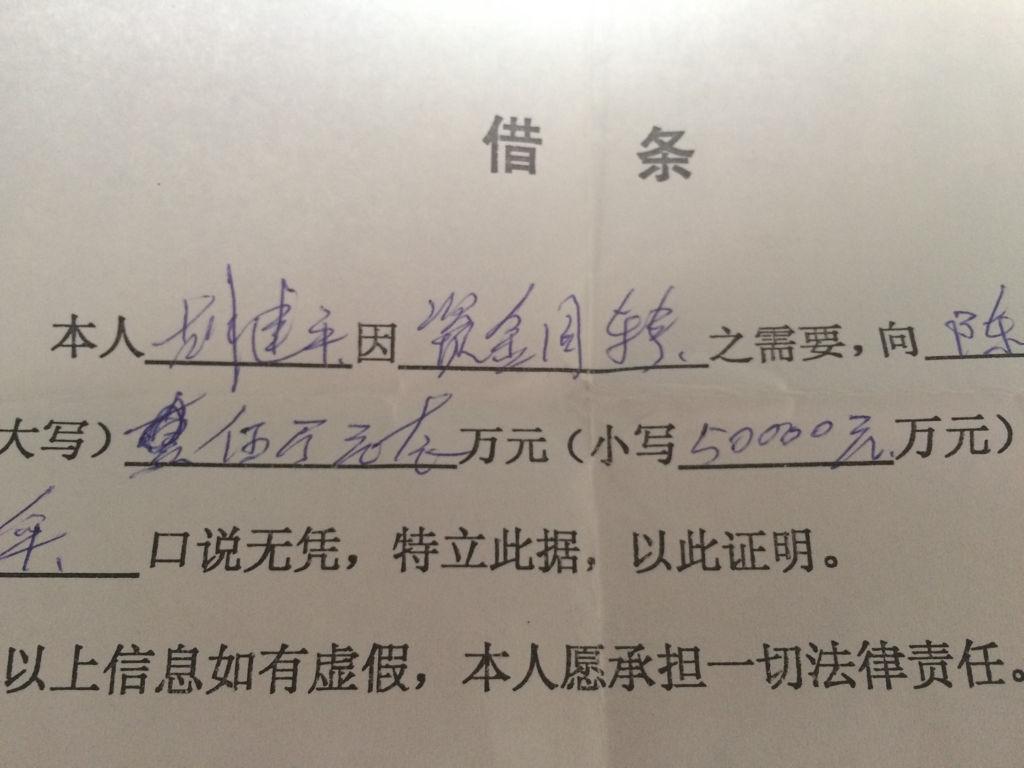 借 条
本人刘建平因资金周转之需要，向陈
大写）伍万元整万元（小写50000元万元）
年 口说无凭，特立此据，以此证明。
以上信息如有虚假，本人愿承担一切法律责任。